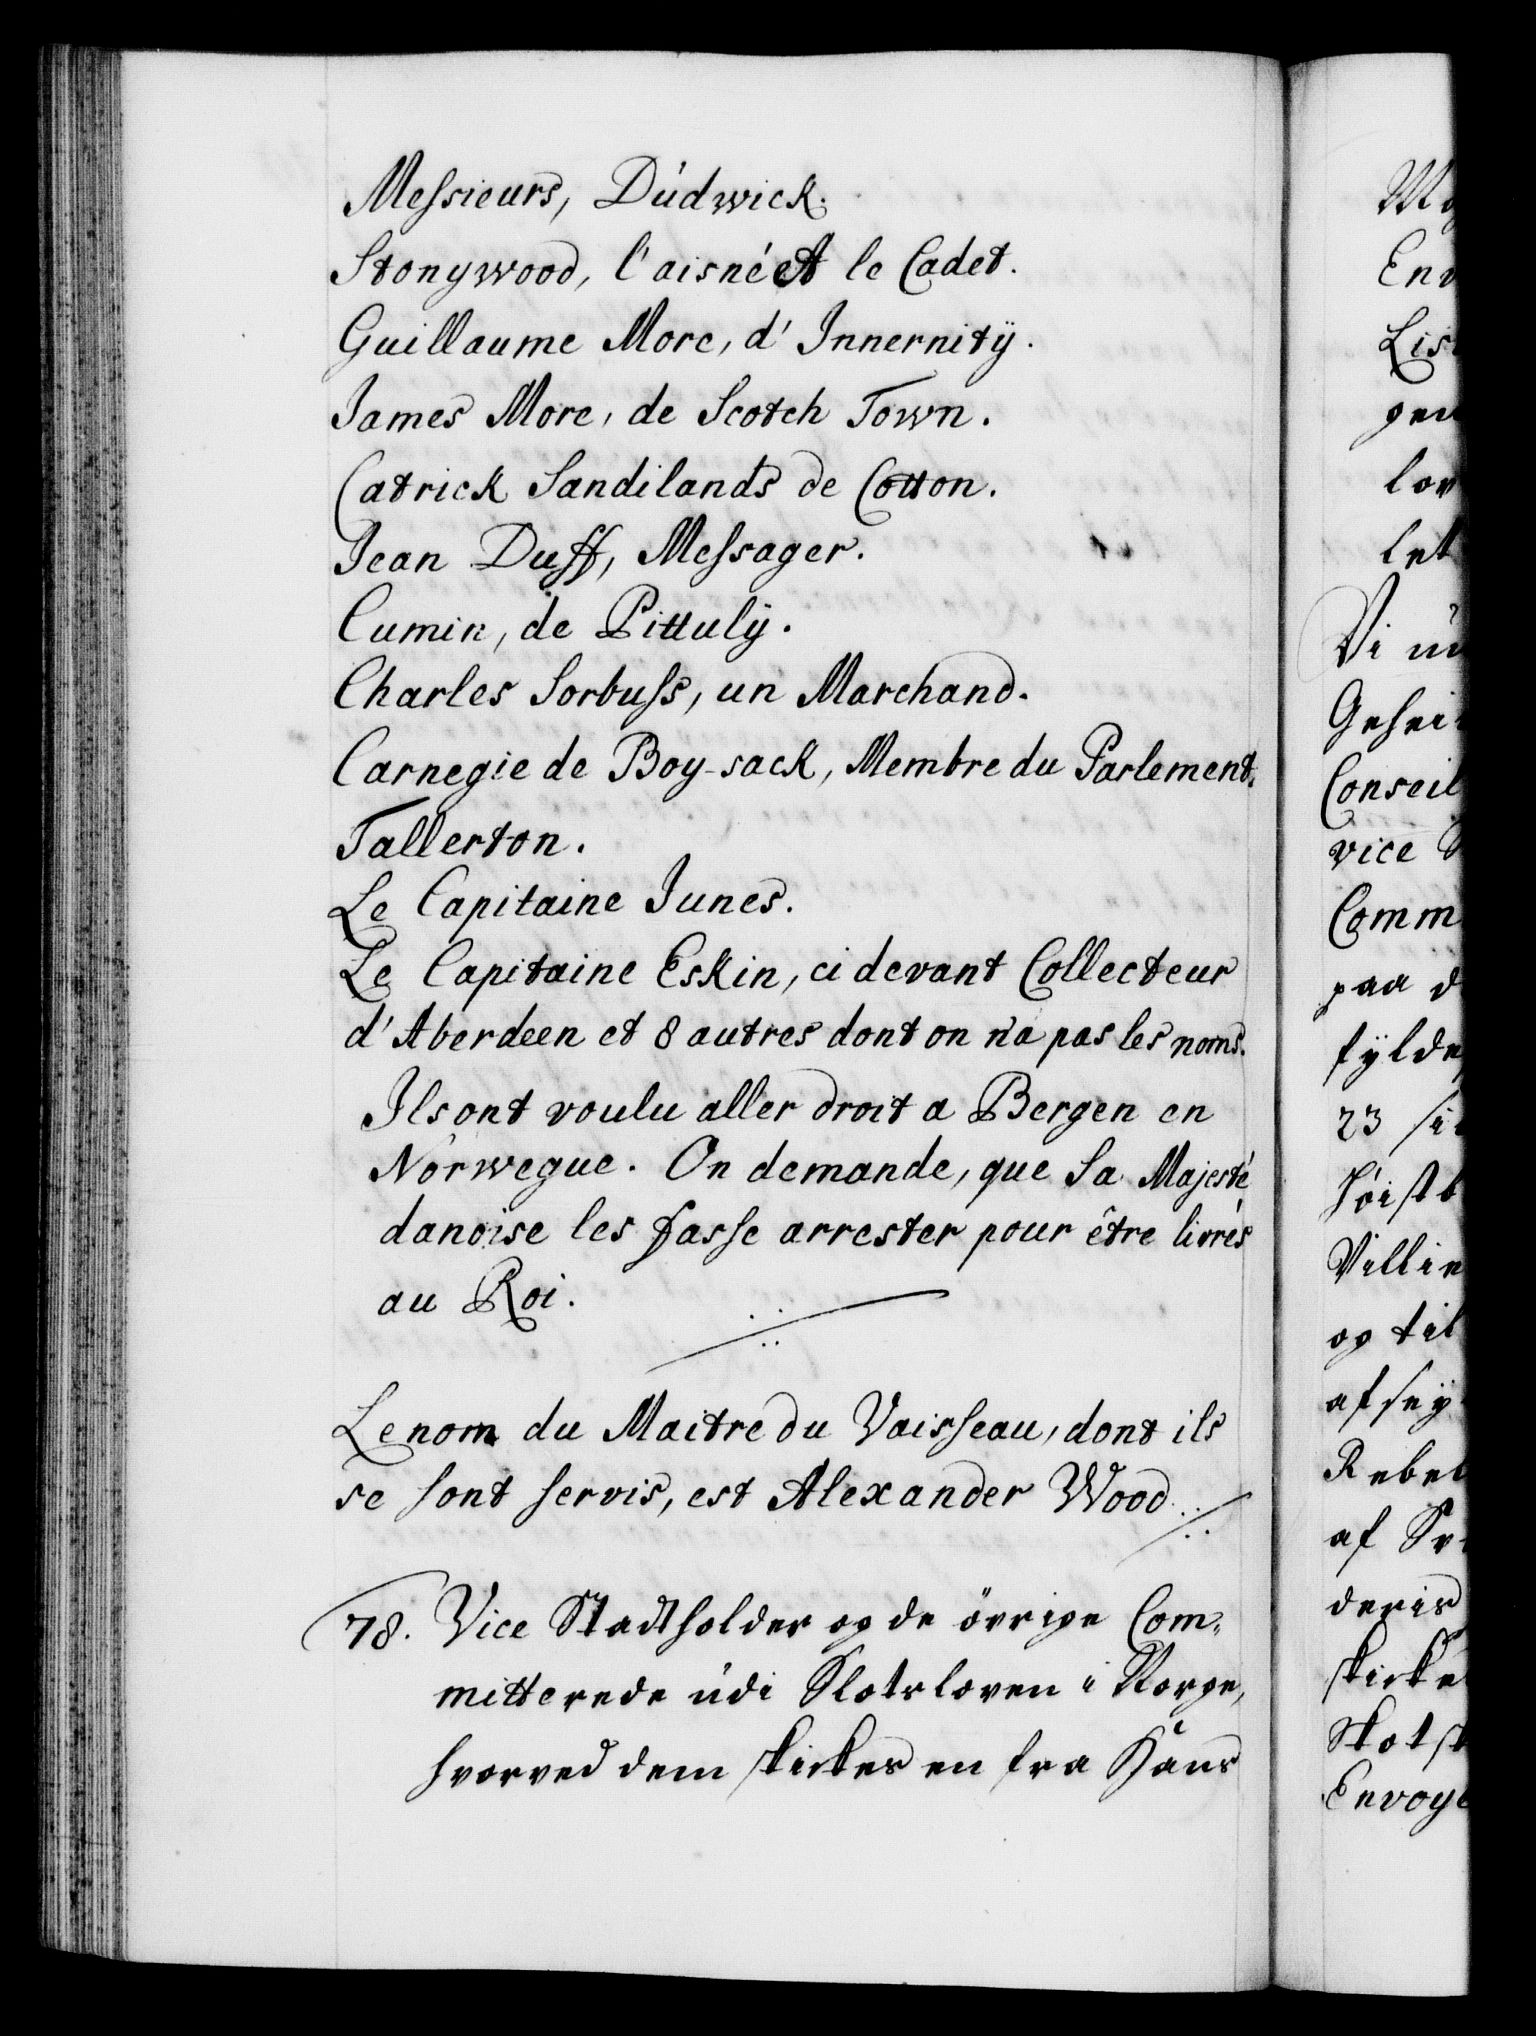 Messieurs, Dúdwick.
Stonywood, l'aisné et le Cadet.
Guillaume More, d'Innernitÿ.
James More, de Scotch Town.
Catrick Sandilands de Cotton.
Jean Duff, Messager.
Cumin, de Pittulÿ.
Charles Sorbuss, un Marchand.
Carnegie de Boy-sack, Membre du Parlement.
Tallerton.
Le Capitaine Junes.
Le Capitaine Eskin, ci devant Collecteur
d'Aberdeen et 8 autres dont on n'a pas les noms.
Ils ont voulu aller droit a Bergen en
Norwegue. On demande, que Sa Majesté
danoise les fasse arrester pour être livrés
au Roi.
Le nom du Maitre du Vaisseau, dont ils
se sont servis, est Alexander Wood
78. Vice Stadtholder og de övrige Com-
mitterede údi Slotsloven i Norge,
hvorved dem skickes en fra Hans
En
Lis
gen
lov
let
Vi
Gehei
Conseil
vice
Comm
paa d
fÿlde
23
Höistb
Villie
og til
Rebel
af
deris
skicke
Envoye